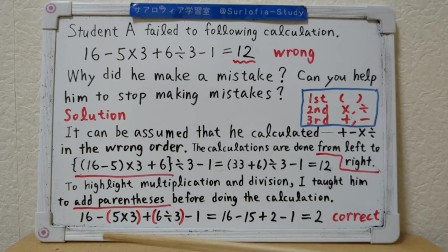 サアロラィア学習室 @Surlofia-Study
Student A failed to following calculation.
16-5×3+6÷3-1=12 wrong
Why did he make a mistake? Can you help
him to stop making mistakes?
1st ( )
2nd ×, ÷
3rd +, -
Solution
It can be assumed that he calculated +-×÷
in the wrong order. The calculations are done from left to
right.
{(16-5)×3+6}÷3-1=(33+6)÷3-1=12
To highlight multiplication and division, I taught him
to add parentheses before doing the calculation.
16-(5×3)+(6÷3)-1=16-15+2-1=2 correct